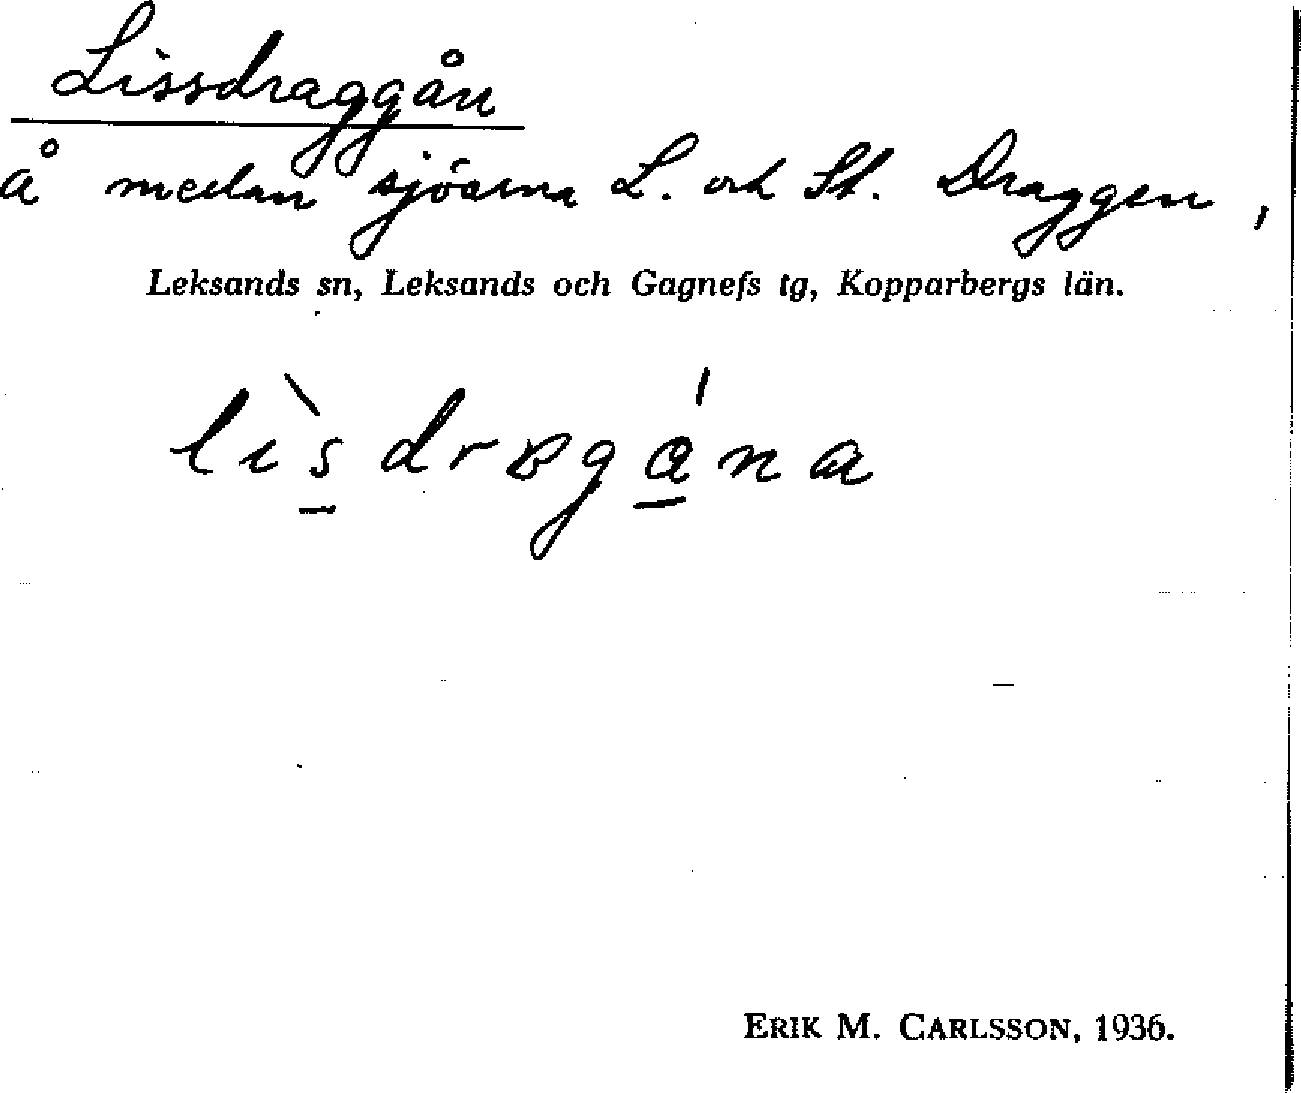 Lissdraggån
å medan sjöarna L. och St. Draggen,
Leksands sn, Leksands och Gagnefs tg, Kopparbergs län.
ERIK M. CARLSSON, 1936.